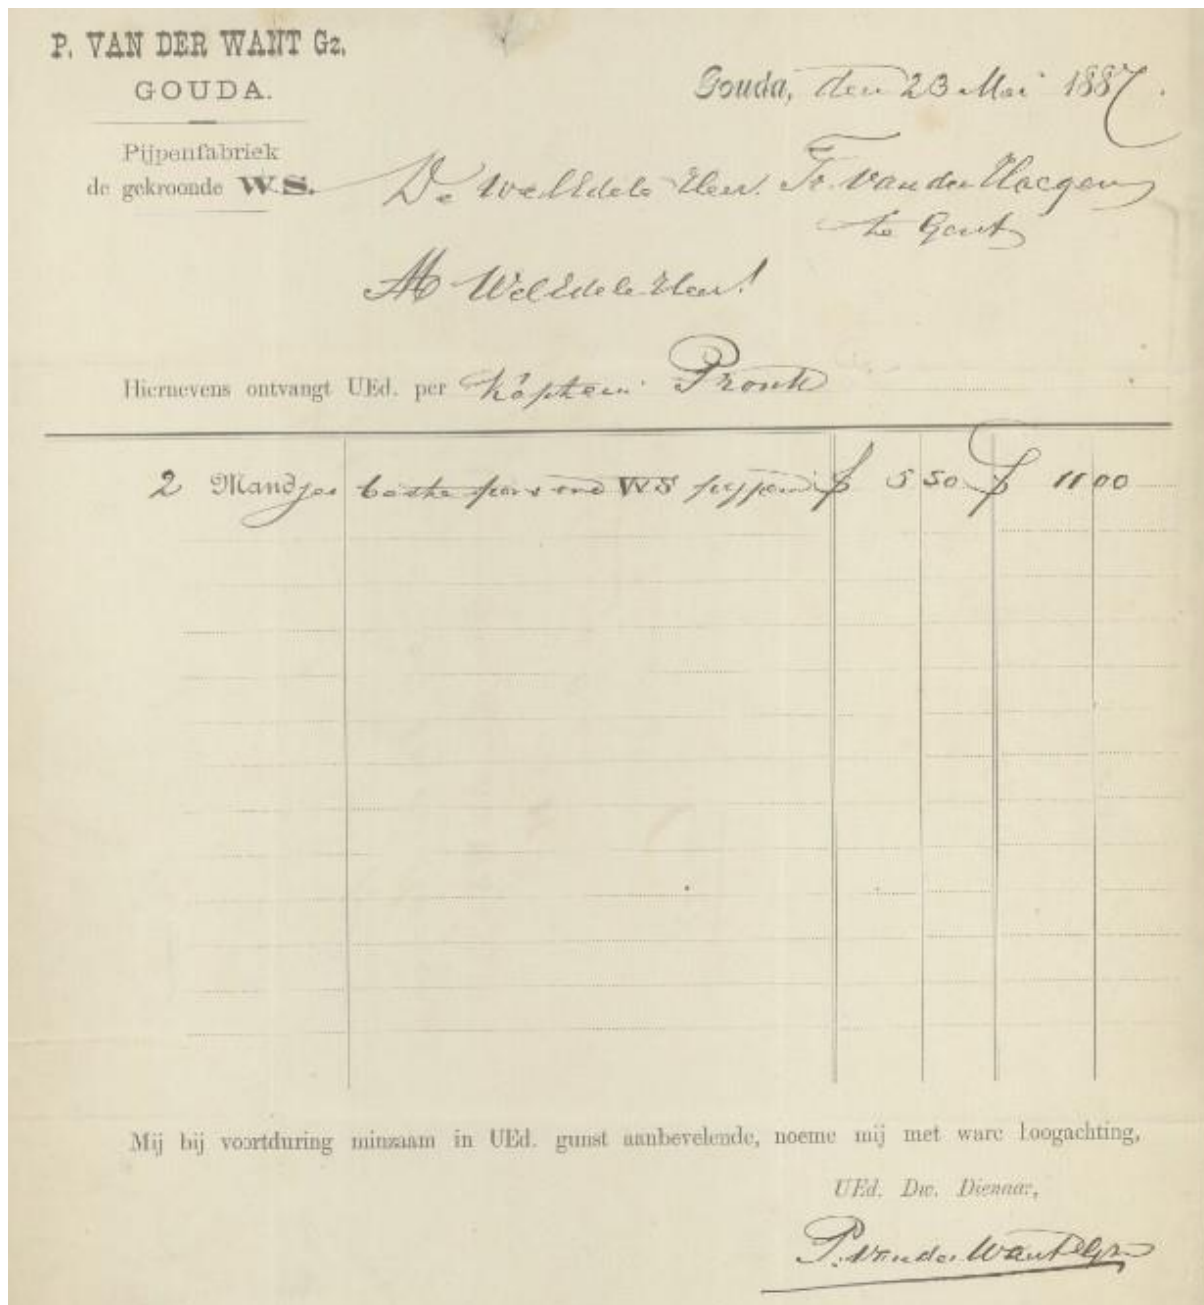 P. VAN DER WANT Gz.
GOUDA.
Gouda, den 23 Mei 1887.
Pijpenfabriek
de gekroonde W.S.
De WelEdele Heer. Fr. van der Haegen
te Gent
WelEdele Heer!
Hiernevens ontvangt UEd. per Kaptein Pronk
2 Mandjes beste WS pijpen f 5 50 f 11 00
Mij bij voortduring minzaam in UEd. gunst aanbevelende, noeme mij met ware hoogachting,
UEd. Dw. Dienaar,
P. van der Want Gz